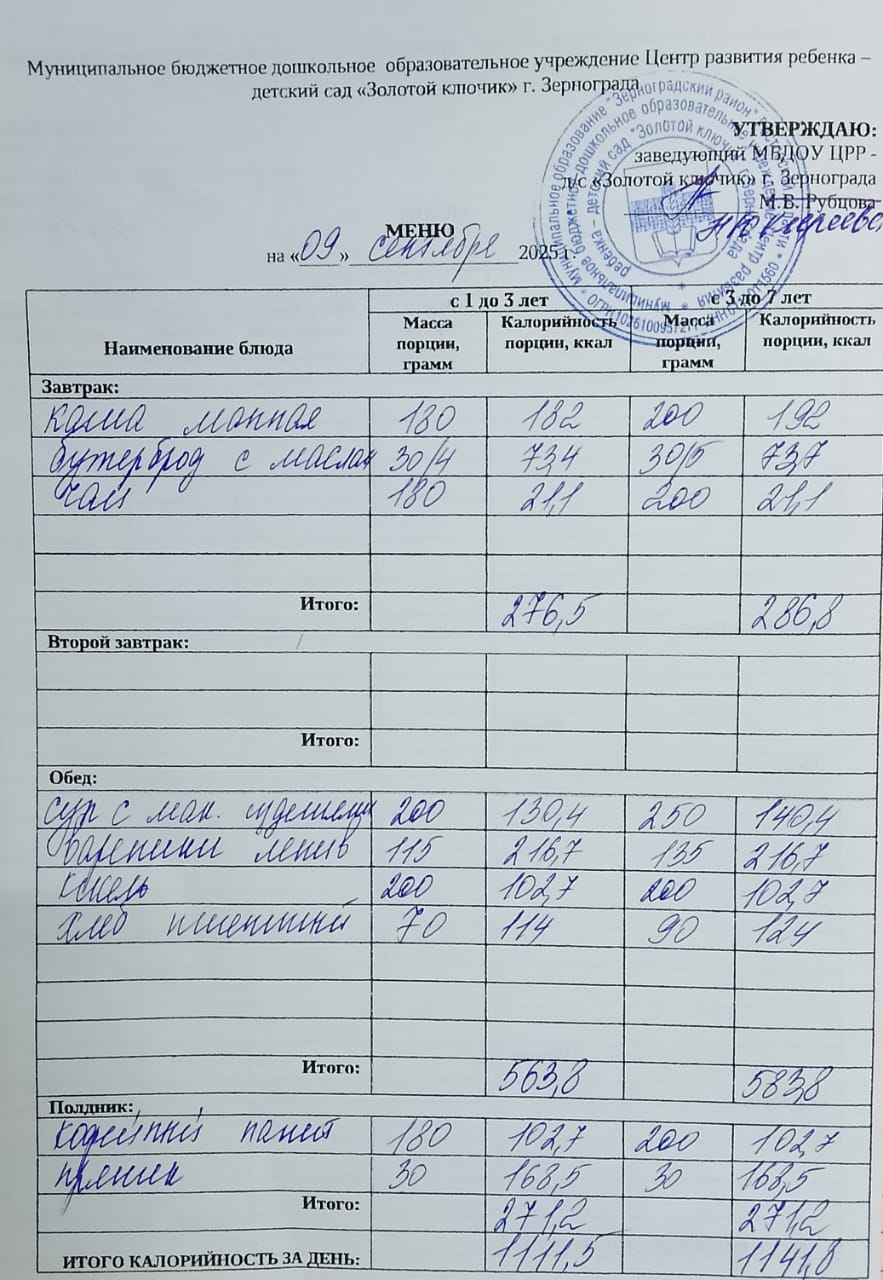 Муниципальное бюджетное дошкольное образовательное учреждение Центр развития ребенка –
детский сад «Золотой ключик» г. Зернограда
УТВЕРЖДАЮ:
заведующий МБДОУ ЦРР -
д/с «Золотой ключик» г. Зернограда
М.В. Рубцова
МЕНЮ
на «09» сентября 2025 г.
Наименование блюда с 1 до 3 лет с 3 до 7 лет
Масса порции, грамм Калорийность порции, ккал Масса порции, грамм Калорийность порции, ккал
Завтрак:
каша манная 180 182 200 192
бутерброд с маслом 30/4 73,4 30/5 73,7
чай 180 21,1 200 21,1
Итого: 276,5 286,8
Второй завтрак:
Итого:
Обед:
суп с мак. изделиями 200 130,4 250 140,4
вареники ленив 115 216,7 135 216,7
кисель 200 102,7 200 102,7
хлеб пшеничный 70 114 90 124
Итого: 563,8 583,8
Полдник:
кофейный напит 180 102,7 200 102,7
пряник 30 168,5 30 168,5
Итого: 271,2 271,2
ИТОГО КАЛОРИЙНОСТЬ ЗА ДЕНЬ: 1111,5 1141,8